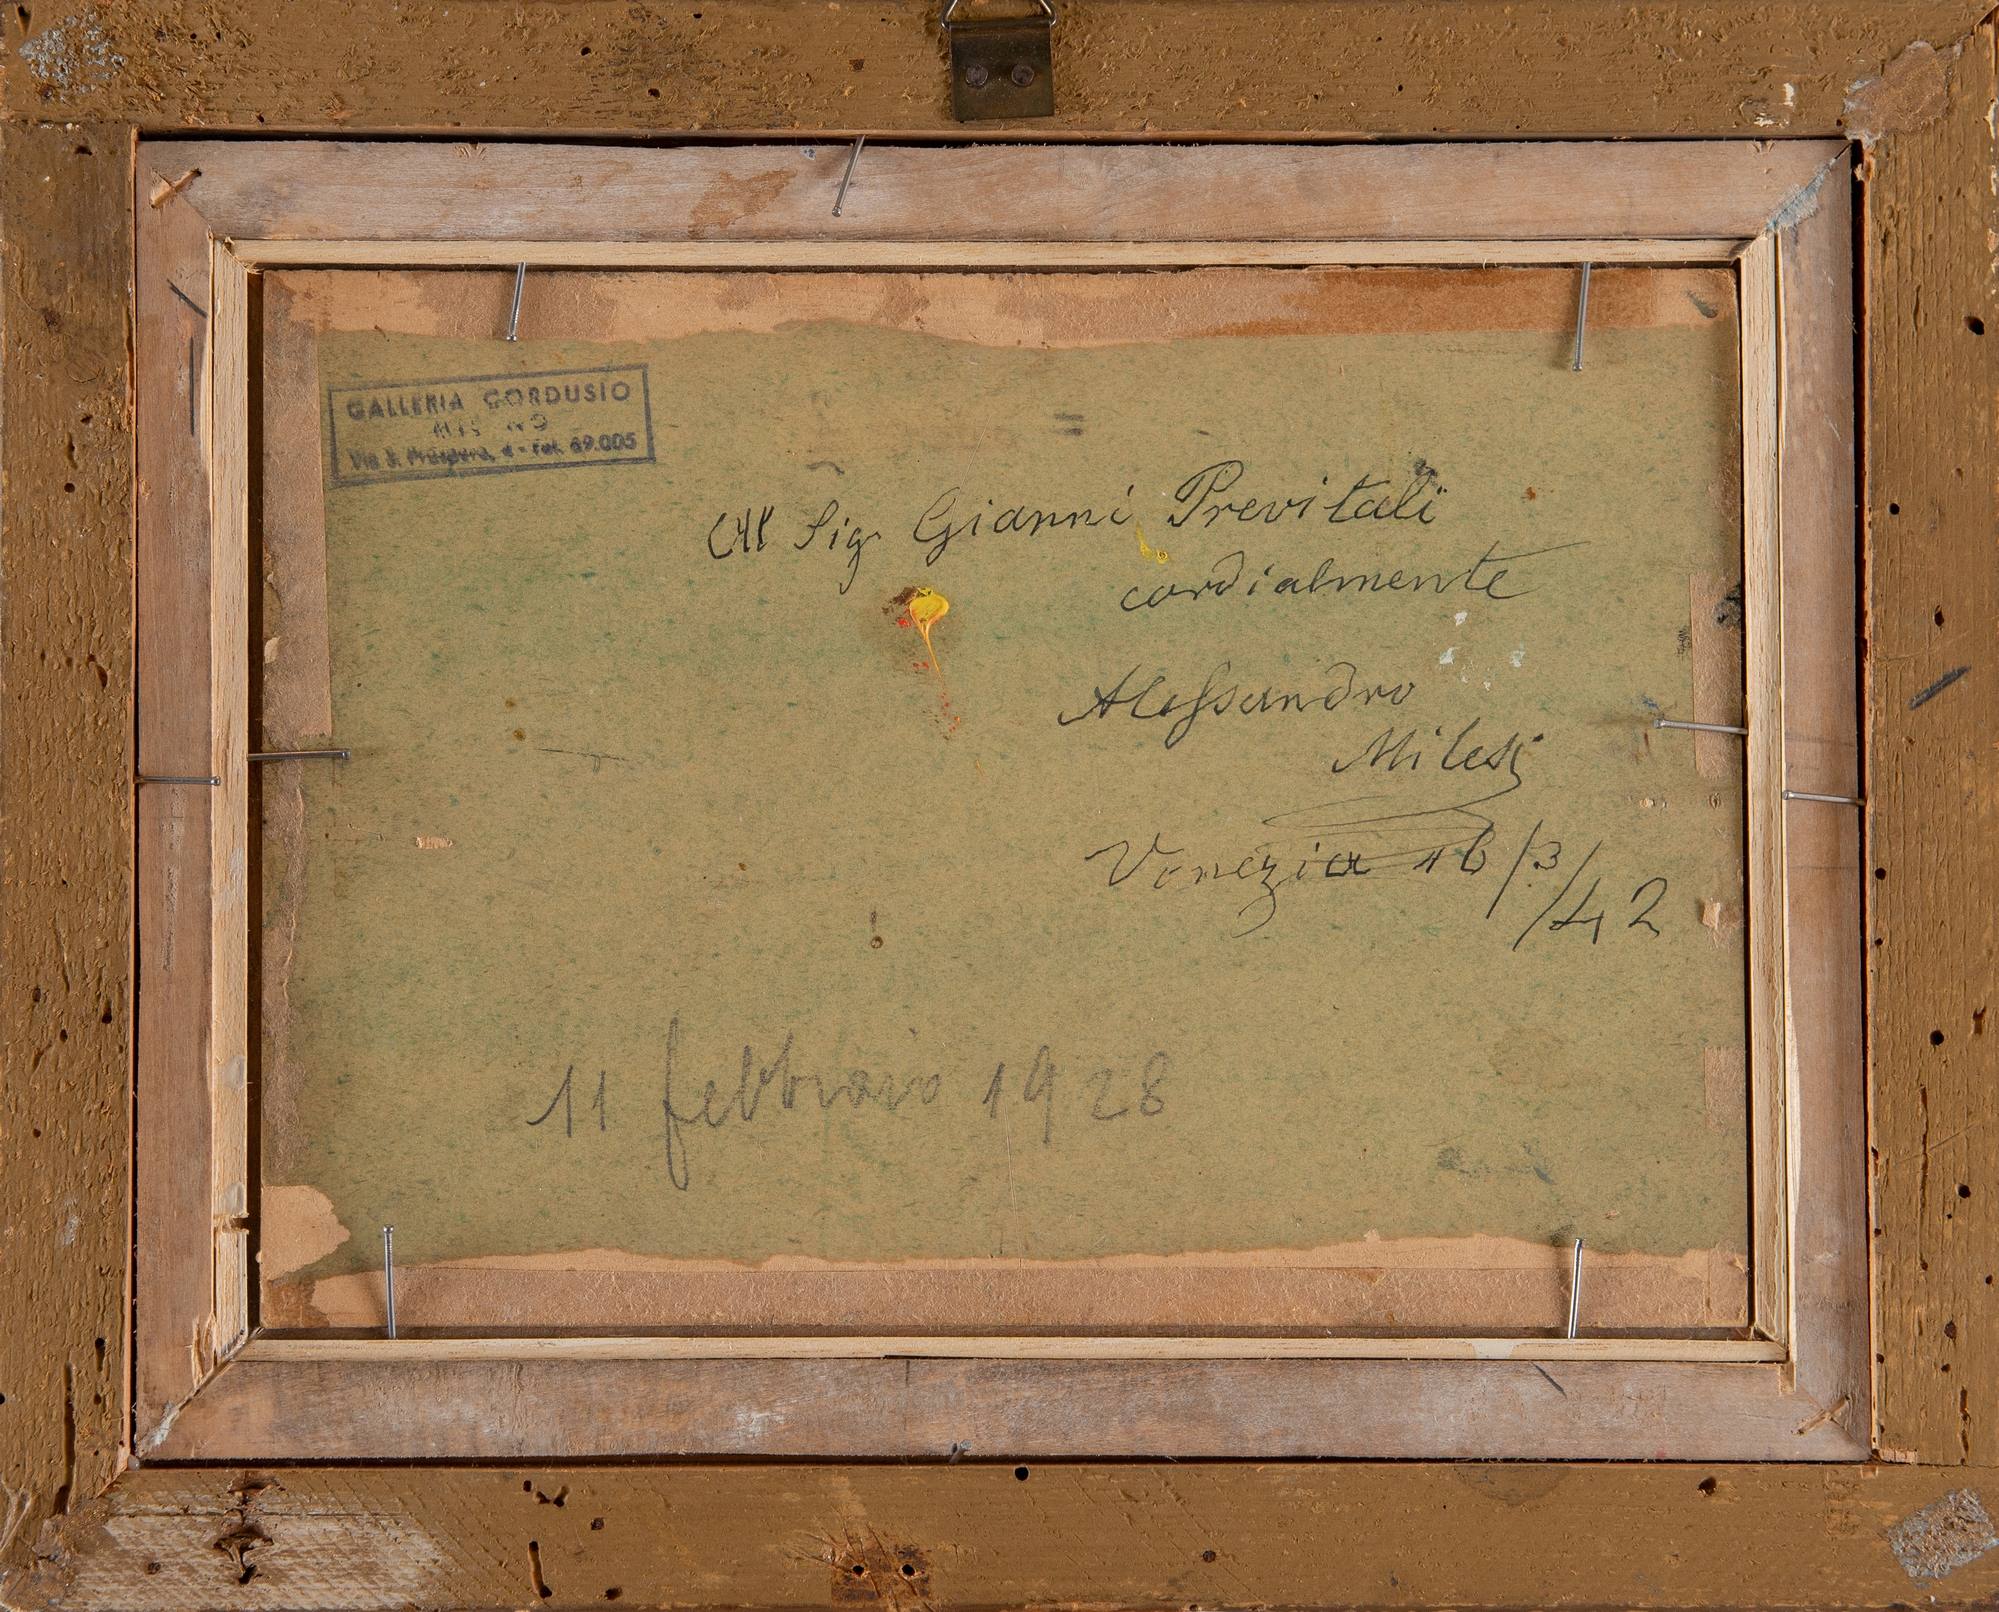 GALLERIA CORDUSIO
Via S. Prospero, 4 - tel. 69.005
Al Sig. Gianni Previtali
cordialmente
Alessandro
Milesi
Venezia 16/3/42
11 febbraio 1928